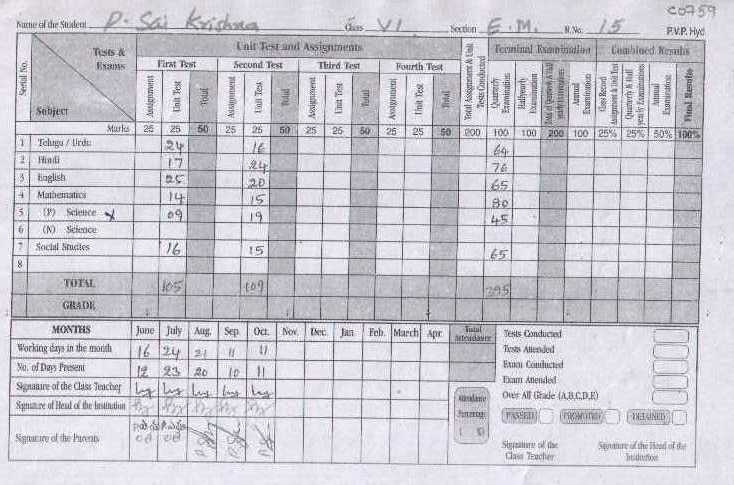 C0759
Name of the Student P. Sai Krishna Class VI Section E.M. R.No. 15 P.V.P. Hyd
Serial No. Tests & Exams Subject Unit Test and Assignments Total Assignment & Unit Tests Conducted Terminal Examination Combined Results
First Test Second Test Third Test Fourth Test
Assignment Unit Test Total Assignment Unit Test Total Assignment Unit Test Total Assignment Unit Test Total Quarterly Examination Halfyearly Examination Annual Examination Class Record Assignment & Unit Test Quarterly & Half yearly Examinations Annual Examination Final Results
Marks 25 25 50 25 25 50 25 25 50 25 25 50 200 100 100 200 100 25% 25% 50% 100%
1 Telugu / Urdu 24 16 64
2 Hindi 17 24 76
3 English 25 20 65
4 Mathematics 14 15 80
5 (P) Science 09 19 45
6 (N) Science
7 Social Studies 16 15 65
8
TOTAL 105 109 395
GRADE
MONTHS June July Aug. Sep. Oct. Nov. Dec. Jan. Feb. March Apr. Total Attendance
Working days in the month 16 24 21 11 11
No. of Days Present 12 23 20 10 11
Signature of the Class Teacher
Signature of Head of the Institution
Signature of the Parents
Attendance Percentage
( %)
Tests Conducted
Tests Attended
Exam Conducted
Exam Attended
Over All Grade (A,B,C,D,E)
PASSED PROMOTED DETAINED
Signature of the Class Teacher
Signature of the Head of the Institution